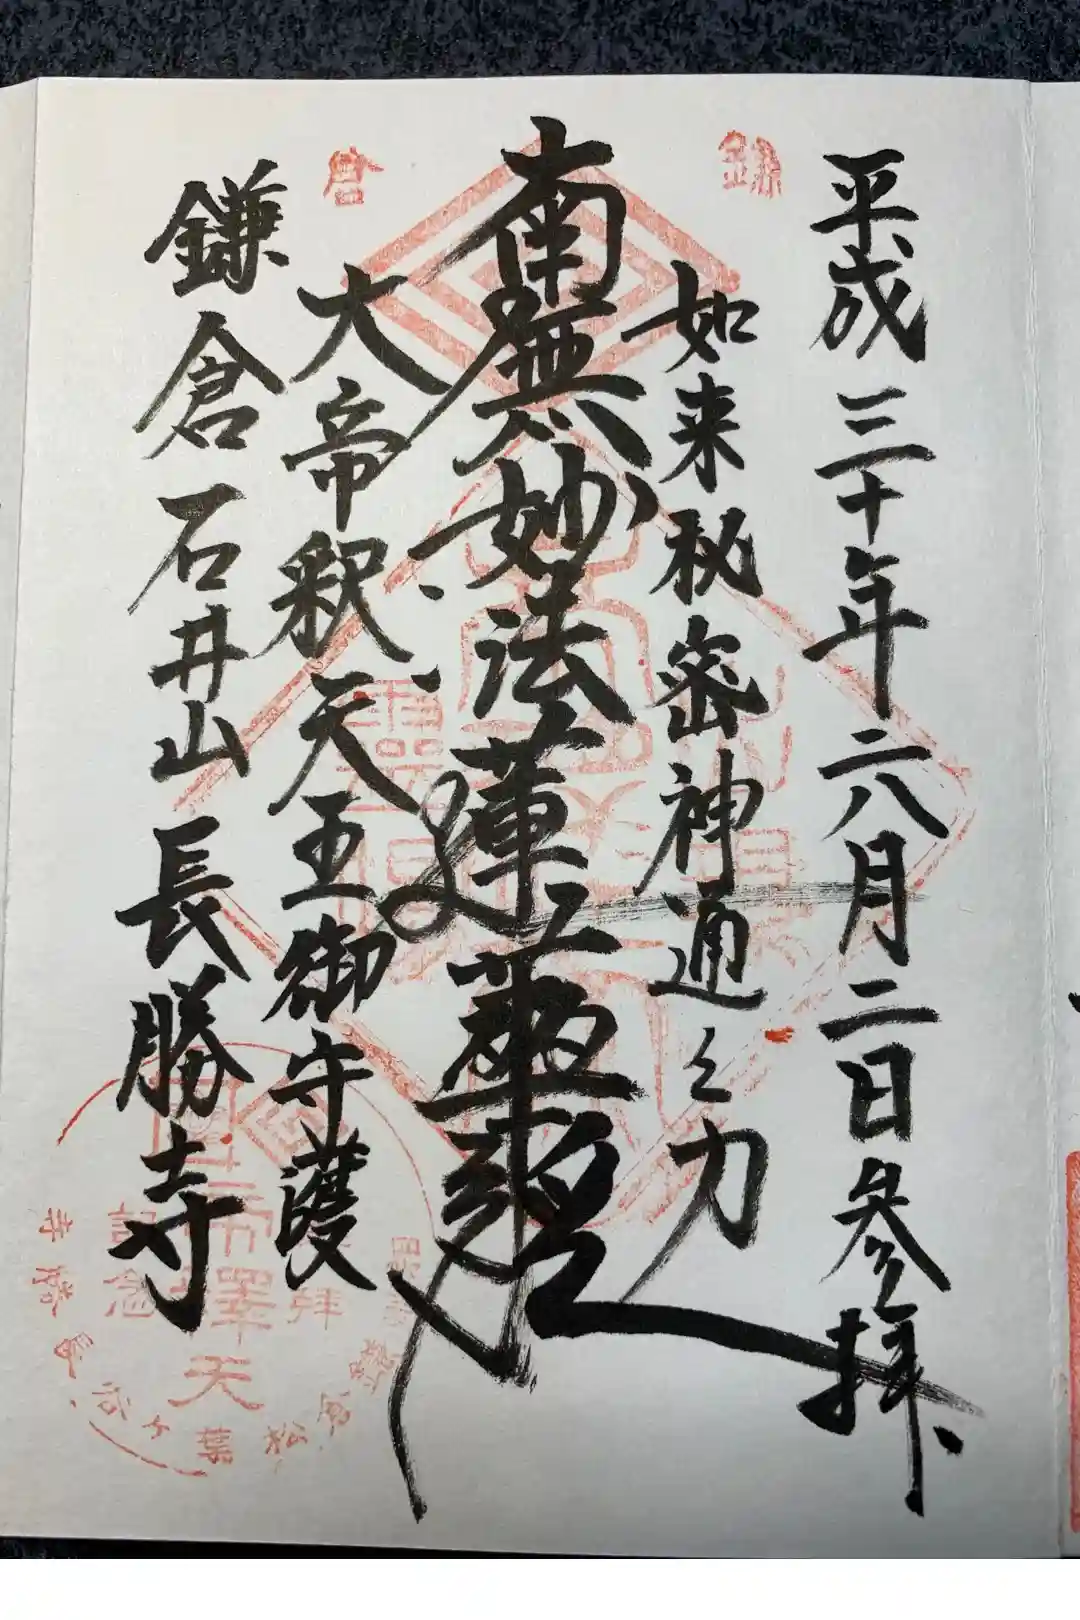 平成三十年六月二日参拝
鎌倉
如来秘密神通之力
南無妙法蓮華経
大帝釈天王御守護
鎌倉石井山長勝寺
帝釋天
記念